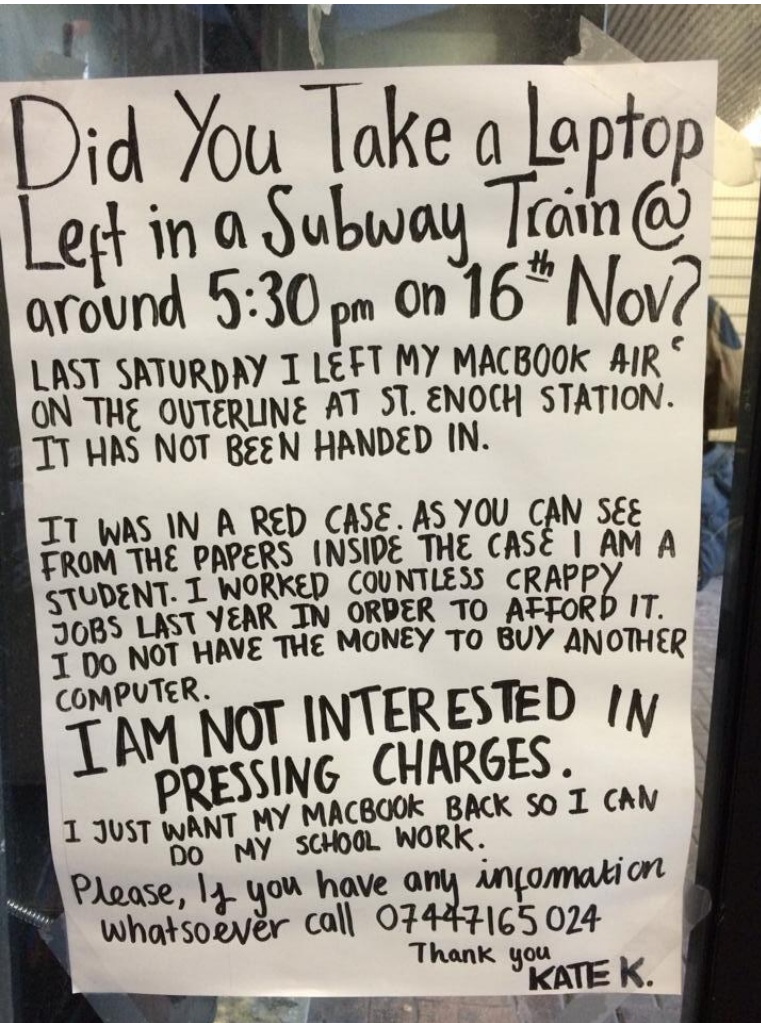 Did You Take a Laptop
Left in a Subway Train @
around 5:30 pm on 16th Nov?
LAST SATURDAY I LEFT MY MACBOOK AIR
ON THE OUTERLINE AT ST. ENOCH STATION.
IT HAS NOT BEEN HANDED IN.
IT WAS IN A RED CASE. AS YOU CAN SEE
FROM THE PAPERS INSIDE THE CASE I AM A
STUDENT. I WORKED COUNTLESS CRAPPY
JOBS LAST YEAR IN ORDER TO AFFORD IT.
I DO NOT HAVE THE MONEY TO BUY ANOTHER
COMPUTER.
I AM NOT INTERESTED IN
PRESSING CHARGES.
I JUST WANT MY MACBOOK BACK SO I CAN
DO MY SCHOOL WORK.
Please, If you have any infomation
whatsoever call 07447165024
Thank you
KATE K.